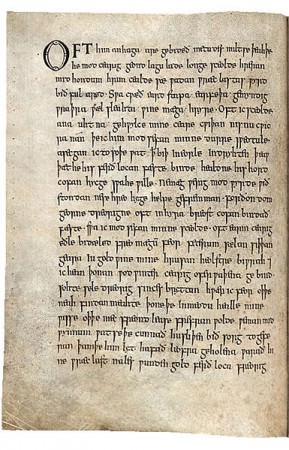 OFT him anhaga are gebideð metudes miltse þeahþe
he modcearig geond lagu lade longe sceolde hreran
mid hondum hrim cealde sæ wadan wræc lastas wyrd
bið ful aræd. Swa cwæð eard stapa earfeþa gemyndig
wraþra wæl sleahta wine mæga hryre. Oft ic sceolde
ana uhtna gehwylce mine ceare cwiþan nis nu cwic
ra nan þe ic him mod sefan minne durre sweotule
asecgan ic to soþe wat þ biþ in eorle indryhten þeaw
þæt he his ferð locan fæste binde healdne his hord
cofan hycge swa he wille. Ne mæg werig mod wyrde wið
stondan ne se hreo hyge helpe gefremman. forðon dom
georne dreorigne oft in hyra breost cofan bindað
fæste. swa ic mod sefan minne sceolde oft earm cearig
eðle bidæled freo mægum feor feterum sælan siþþan
geara iu gold wine mine hrusan heolster biwrah ⁊
ic hean þonan wod winter cearig ofer waþena ge bind
sohte sele dreorig sinces bryttan hwær ic feor oþþe
neah findan meahte þone þe in meodu healle mine
wisse oþþe mec freond leasne frefran wolde weman mid
wynnum wat se þe cunnað hu sliþen bið sorg to gefe
ran þam þe him lyt hafað leofra geholena warað hi
ne wræc last nales wunden gold ferð loca freorig